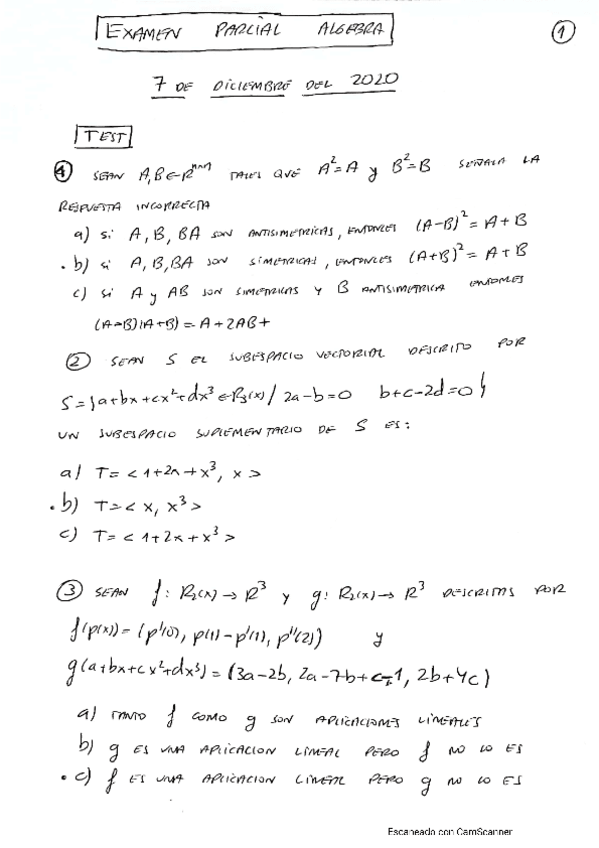 EXAMEN PARCIAL ALGEBRA
1
7 DE DICIEMBRE DEL 2020
TEST
1 SEAN A,B ∈ R^{n×n} TALES QUE A²=A y B²=B SEÑALA LA
RESPUESTA INCORRECTA
a) si A, B, BA SON ANTISIMETRICAS, ENTONCES (A-B)² = A+B
. b) si A, B, BA SON SIMETRICAS, ENTONCES (A+B)² = A+B
c) si A y AB SON SIMETRICAS Y B ANTISIMETRICA ENTONCES
(A-B)(A+B) = A+2AB+
2 SEAN S EL SUBESPACIO VECTORIAL DESCRITO POR
S={a+bx+cx²+dx³ ∈ R₃(x) / 2a-b=0 b+c-2d=0}
UN SUBESPACIO SUPLEMENTARIO DE S ES:
a) T= < 1+2x+x³, x >
. b) T= < x, x³ >
c) T= < 1+2x+x³ >
3 SEAN f: R₂(x) → R³ y g: R₂(x) → R³ DESCRITAS POR
f(p(x)) = (p'(0), p(1)-p'(1), p''(2)) y
g(a+bx+cx²+dx³) = (3a-2b, 2a-7b+c+1, 2b+4c)
a) TANTO f COMO g SON APLICACIONES LINEALES
b) g ES UNA APLICACION LINEAL PERO f NO LO ES
. c) f ES UNA APLICACION LINEAL PERO g NO LO ES
Escaneado con CamScanner